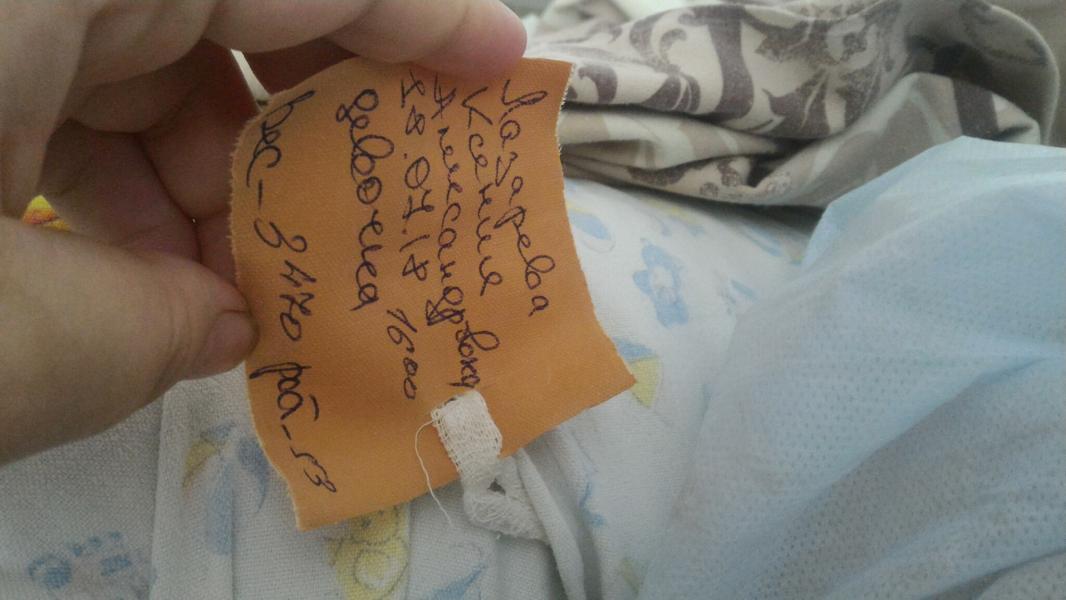 Лазарева
Ксения
Александровна
28.07.18 1600
девочка
Вес-3470 рост-53